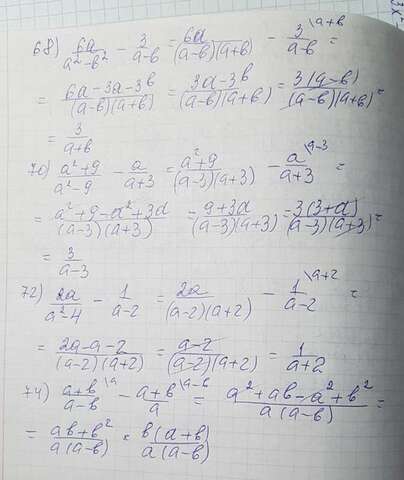 68) 6a/(a²-b²) - 3/(a-b) = 6a/((a-b)(a+b)) - 3/(a-b) \a+b =
= (6a-3a-3b)/((a-b)(a+b)) = (3a-3b)/((a-b)(a+b)) = 3(a-b)/((a-b)(a+b)) =
= 3/(a+b)
70) (a²+9)/(a²-9) - a/(a+3) = (a²+9)/((a-3)(a+3)) - a/(a+3) \a-3 =
= (a²+9-a²+3a)/((a-3)(a+3)) = (9+3a)/((a-3)(a+3)) = 3(3+a)/((a-3)(a+3)) =
= 3/(a-3)
72) 2a/(a²-4) - 1/(a-2) = 2a/((a-2)(a+2)) - 1/(a-2) \a+2 =
= (2a-a-2)/((a-2)(a+2)) = (a-2)/((a-2)(a+2)) = 1/(a+2)
74) (a+b)/(a-b) \a - (a+b)/a \a-b = (a²+ab-a²+b²)/(a(a-b)) =
= (ab+b²)/(a(a-b)) = b(a+b)/(a(a-b))